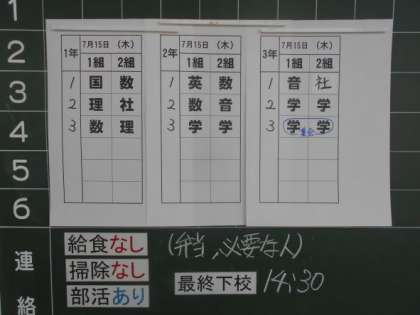 1
2
3
4
5
6
1年 7月15日 (木)
1組 2組
1 国 数
2 理 社
3 数 理
2年 7月15日 (木)
1組 2組
1 英 数
2 数 音
3 学 学
3年 7月15日 (木)
1組 2組
1 音 社
2 学 学
3 学 学
連絡
給食なし (弁当、必要な人)
掃除なし
部活あり 最終下校 14:30